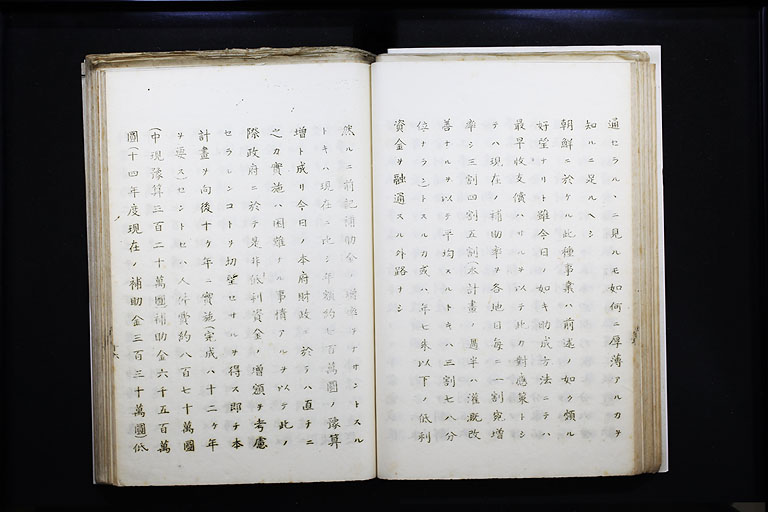 通セラルヽニ見ルモ如何ニ厚薄アルカヲ
知ルニ足ルヘシ
朝鮮ニ於ケル此種事業ハ前述ノ如ク頗ル
好望ナリト雖今日ノ如キ助成方法ニテハ
最早收支償ハサルヲ以テ此カ對應策トシ
テハ現在ノ補助率ヲ各地目毎ニ一割宛增
率シ三割四割五割(本計畫ノ過半ハ灌漑改
善ナルヲ以テ平均スルトキハ三割七八分
位ナラン)トスルカ或ハ年七朱以下ノ低利
資金ヲ融通スル外路ナシ
然ルニ前記補助金ノ增率ヲナサントスル
トキハ現在ニ比シ年額約七百萬圓ノ豫算
增ト成リ今日ノ本府財政ニ於テハ直チニ
之カ實施ハ困難ナル事情アルヲ以テ此ノ
際政府ニ於テ是非低利資金ノ增額ヲ考慮
セラレンコトヲ切望セサルヲ得ス即チ本
計畫ヲ向後十ケ年ニ實施(完成ハ十二ケ年
ヲ要ス)セントセハ人件費約八百七十萬圓
(中現豫算三百二十萬圓)補助金六千五百萬
圓(十四年度現在ノ補助金三百三十萬圓)低